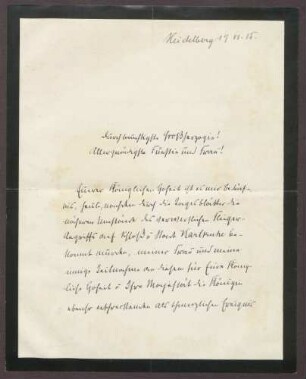 Heidelberg 19
durchlauchtigste Großherzogin!
Allergnädigste Fürstin und Frau!
Eurer Königlichen Hoheit ist es mir
heute, nachdem durch die Tagesblätter die
näheren Umstände des Flieger-
angriffs auf Schloß u Stadt Karlsruhe be-
kannt wurden, meiner Treue und meine
innige Teilnahme an diesem für Eure König-
liche Hoheit u Ihre Majestät die Königin
ebenso als schmerzlichen Ereignis